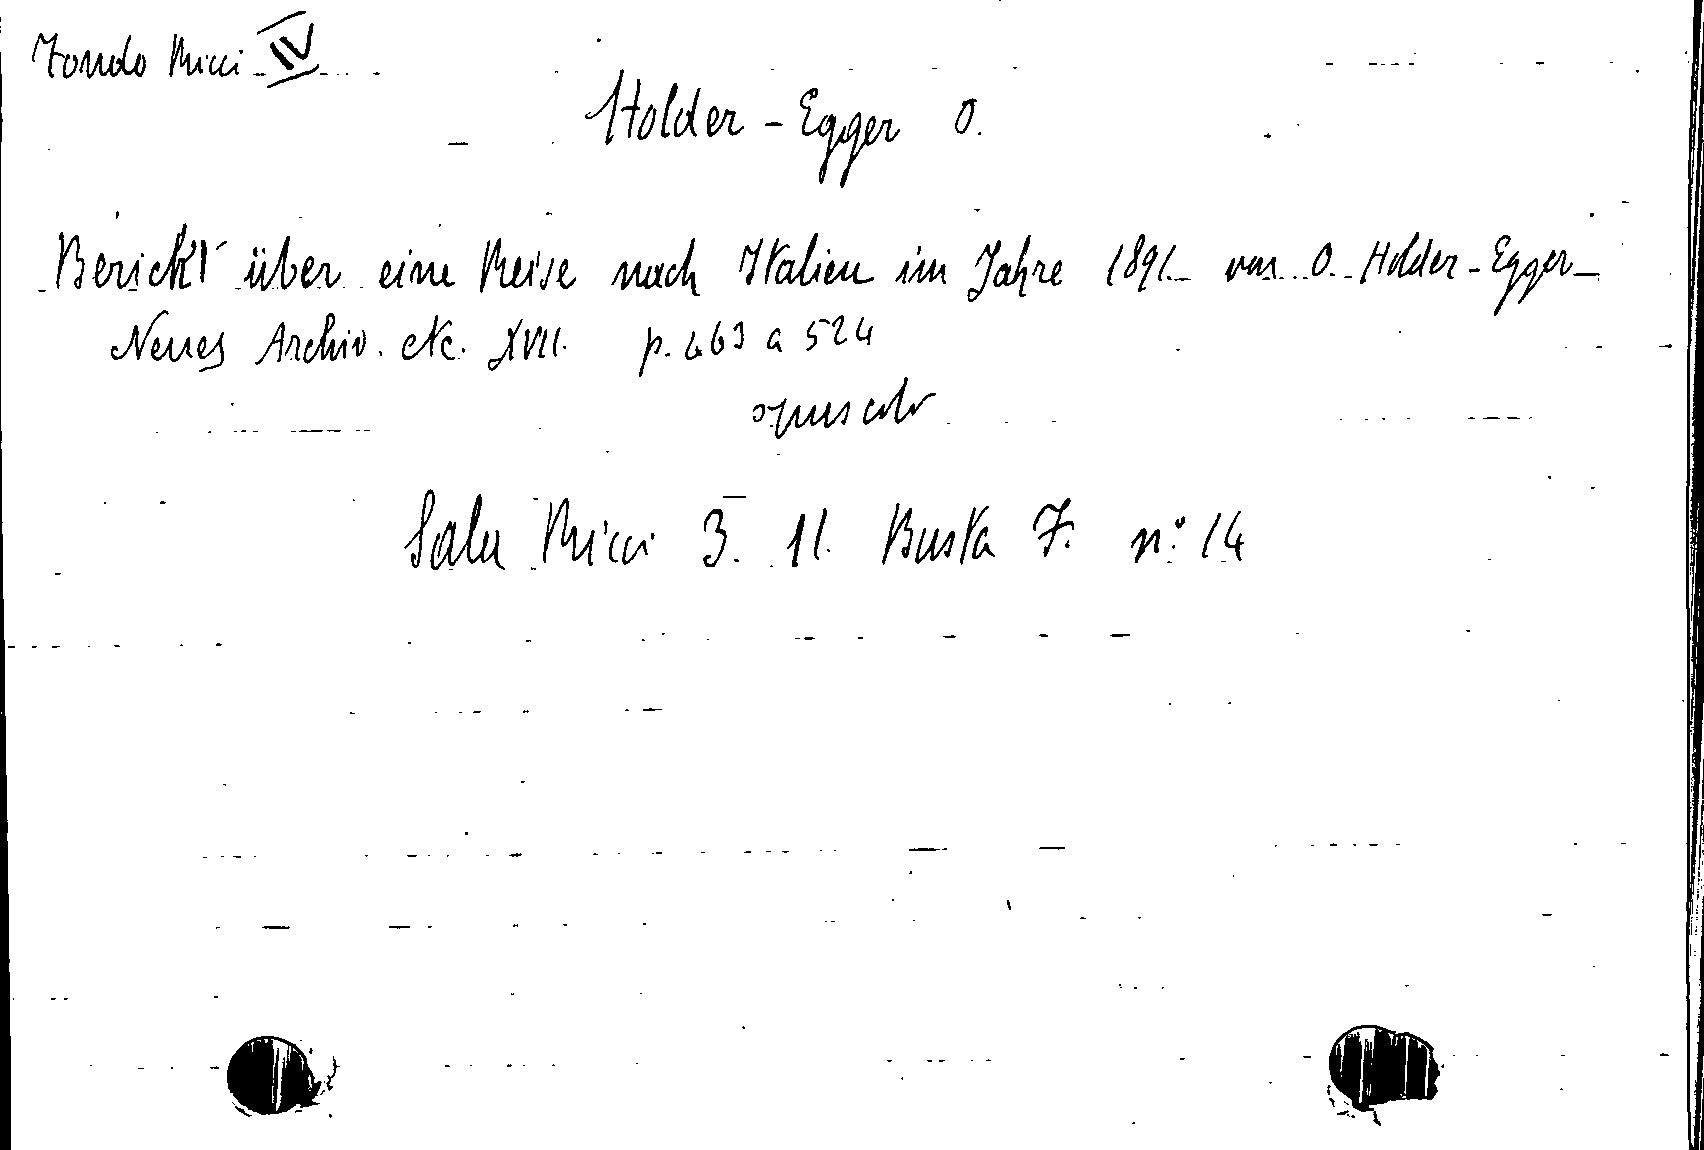 Fondo Ricci IV
Holder-Egger O.
Bericht über eine Reise nach Italien im Jahre 1891 von O. Holder-Egger
Neues Archiv. etc. XVII. p. 463 a 524
opuscolo
Sala Ricci 3. 11. Busta 7. n.° 14